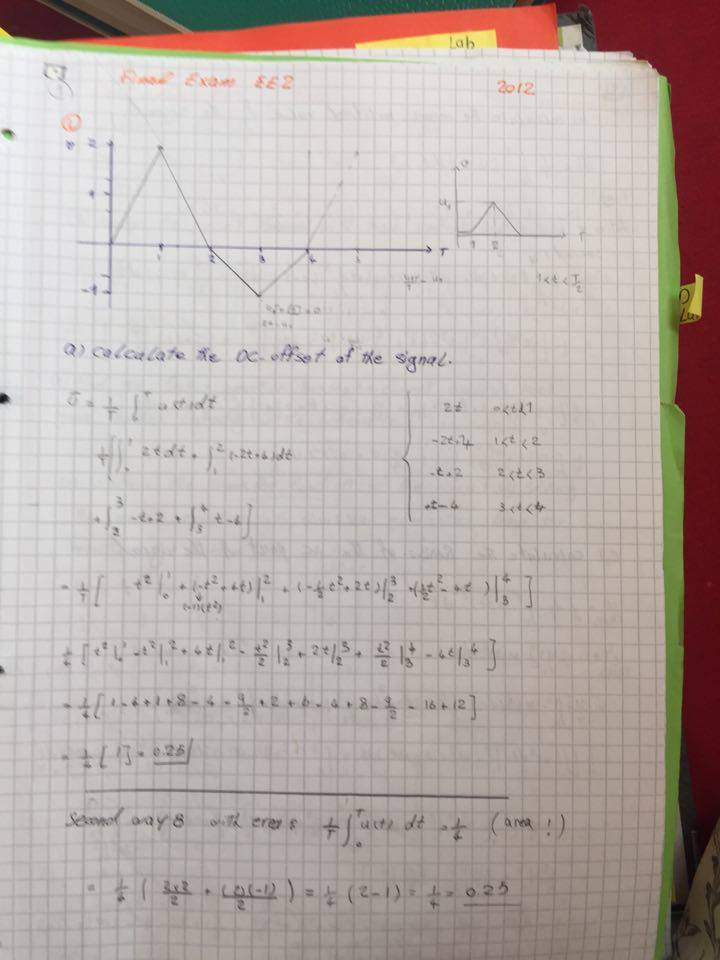 Lab
Final Exam EE2 2012
①
v 2
1
-1
1 2 3 4 T
v
u₁
1 2 T
1<t<T/2
a) calculate the DC-offset of the signal.
ū = 1/T ∫₀ᵀ u(t)dt
1/T[∫₀¹ 2t dt + ∫₁² (-2t+4)dt
+∫₂³ -t+2 + ∫₃⁴ t-4]
2t 0<t<1
-2t+4 1<t<2
-t+2 2<t<3
+t-4 3<t<4
= 1/T [ t²|₀¹ + (-t²+4t)|₁² + (-1/2t²+2t)|₂³ + (1/2t²-4t)|₃⁴ ]
1/4 [t²|₀¹ -t²|₁² + 4t|₁² - t²/2|₂³ + 2t|₂³ + t²/2|₃⁴ - 4t|₃⁴]
= 1/4 [1-4+1+8-4-9/2+2+6-4+8-9/2-16+12]
= 1/4 [1] = 0.25
Second way 8 with 1/T ∫₀ᵀ u(t) dt = 1/4 (area!)
= 1/4 ( 2x2/2 + (2)(-1)/2 ) = 1/4 (2-1) = 1/4 = 0.25